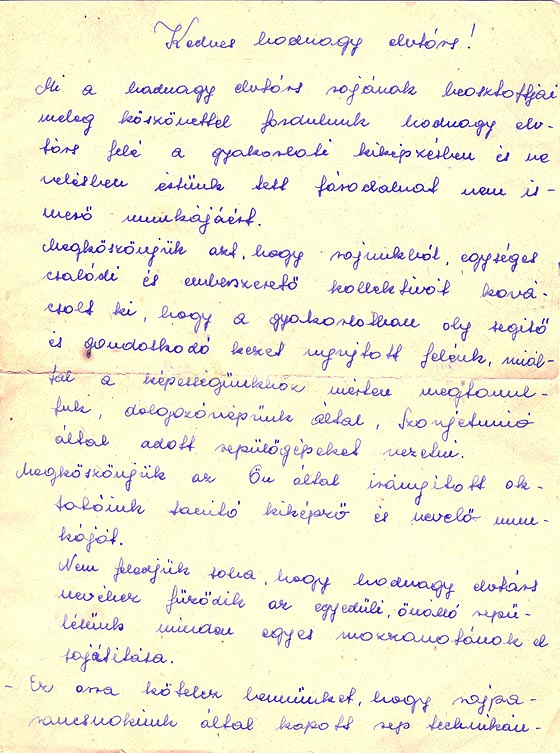 Kedves hadnagy elvtárs!
Mi a hadnagy elvtárs rajának beosztottjai
meleg köszönettel fordulunk hadnagy elv-
társ felé a gyakorlati kiképzésben és ne
velésben értünk tett fáradalmat nem is-
merő munkájáért.
Megköszönjük azt, hogy rajunkból, egységes
családi és emberszerető kollektívát ková-
csolt ki, hogy a gyakorlatban oly segítő
és gondoskodó kezet nyujtott felénk, miál-
tal a képességünkhöz mérten megtanul-
tuk, dolgozónépünk által, Szovjetunió
által adott repülőgépeket vezetni.
Megköszönjük az Ön által irányított ok-
tatóink tanító kiképző és nevelő mun-
káját.
Nem feledjük soha, hogy hadnagy elvtárs
nevéhez fűződik az egyedüli, önálló repü-
lésünk minden egyes mozzanatának el
sajátítása.
- Ez arra kötelez bennünket, hogy rajpa-
rancsnokunk által kapott rep technikán-